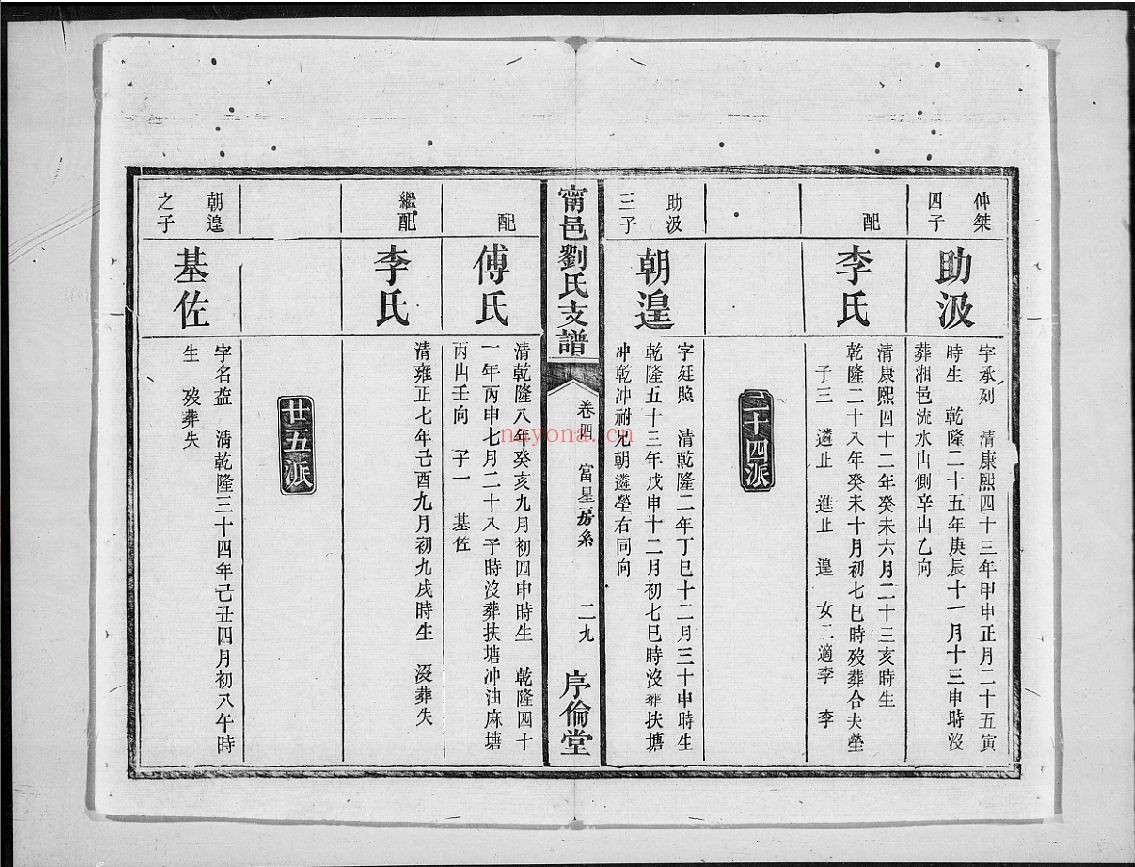 仲桀
四子
助汲
字承刻 清康熙四十三年甲申正月二十五寅
時生 乾隆二十五年庚辰十一月十三申時沒
葬湘邑流水山側辛山乙向
配
李氏
清康熙四十二年癸未六月二十三亥時生
乾隆二十八年癸未十月初七巳時殁葬合夫塋
子三 遴止 進止 遑 女二適李 李
二十四派
助汲
三子
朝遑
字廷賧 清乾隆二年丁巳十二月三十申時生
乾隆五十三年戊申十二月初七巳時沒葬扶塘
冲乾冲祔兄朝遴塋右同向
甯邑劉氏支譜
卷四 富星房系 二九
序倫堂
配
傅氏
清乾隆八年癸亥九月初四申時生 乾隆四十
一年丙申七月二十八子時沒葬扶塘冲油麻塘
丙山壬向 子一 基佐
繼配
李氏
清雍正七年己酉九月初九戌時生 没葬失
廿五派
朝遑
之子
基佐
字名盛 清乾隆三十四年己丑四月初八午時
生 殁葬失
nayona.cn